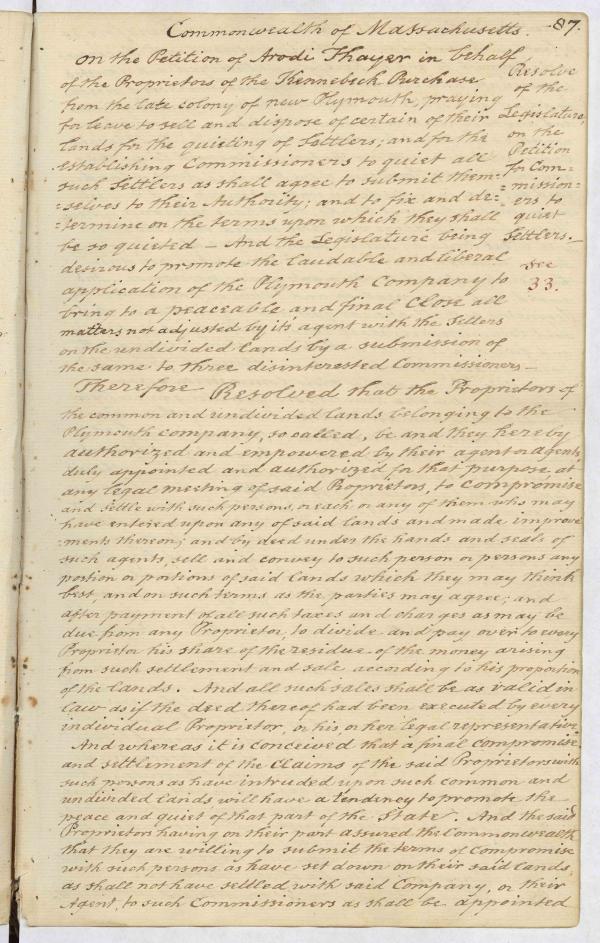 87.
Commonwealth of Massachusetts.
On the Petition of Arodi Thayer in behalf
of the Proprietors of the Kennebeck Purchase
from the late colony of new Plymouth, praying
for leave to sell and dispose of certain of their
lands for the quieting of Settlers; and for the
establishing Commissioners to quiet all
such Settlers as shall agree to submit them-
-selves to their Authority; and to fix and de-
-termine on the terms upon which they shall
be so quieted — And the Legislature being
desirous to promote the laudable and liberal
application of the Plymouth Company to
bring to a peaceable and final Close all
matters not adjusted by its agent with the Setlers
on the undivided lands by a submission of
the same to three disinterested Commissioners —
Resolve
of the
Legislature,
on the
Petition
for Com=
=mission=
=ers to
quiet
Settlers. —
see
33.
Therefore Resolved that the Proprietors of
the common and undivided lands belonging to the
Plymouth company, so called, be and they hereby
authorized and empowered by their agent or agents,
duly appointed and authorized for that purpose at
any legal meeting of said Proprietors, to compromise
and settle with such persons, or each or any of them who may
have entered upon any of said lands and made improve
-ments thereon; and by deed under the hands and seals of
such agents, sell and convey to such person or persons any
portion or portions of said lands which they may think
best, and on such terms as the parties may agree; and
after payment of all such taxes and charges as may be
due from any Proprietor, to divide and pay over to every
Proprietor his share of the residue of the money arising
from such settlement and sale according to his proportion
of the lands. And all such sales shall be as valid in
law as if the deed thereof had been executed by every
individual Proprietor, or his, or her legal representative.
And whereas it is conceived that a final compromise
and settlement of the Claims of the said Proprietors with
such persons as have intruded upon such common and
undivided lands will have a tendency to promote the
peace and quiet of that part of the State. And the said
Proprietors having on their part assured the Commonwealth
that they are willing to submit the terms of Compromise
with such persons as have set down on their said lands,
as shall not have settled with said Company, or their
Agent, to such Commissioners as shall be appointed